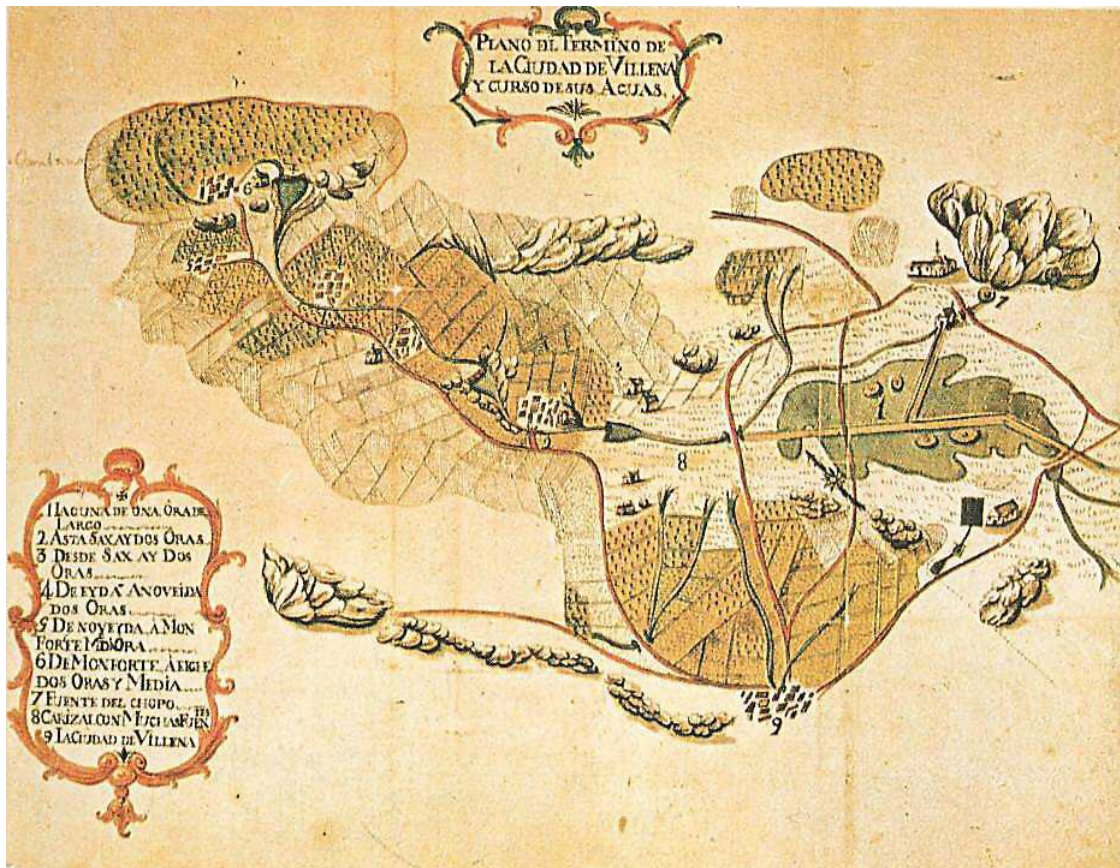 PLANO DEL TERMINO DE
LA CIUDAD DE VILLENA
Y CURSO DE SUS AGUAS.
6
7
1
8
9
1 LAGUNA DE UNA ORA DE
LARGO
2 ASTA SAX AY DOS ORAS
3 DESDE SAX AY DOS
ORAS
4 DE EYDA A NOVEIDA
DOS ORAS
5 DE NOVEYDA A MON
FORTE MEDIA ORA
6 DE MONFORTE A ELCHE
DOS ORAS Y MEDIA
7 FUENTE DEL CHOPO
8 CARIZAL CON MUCHAS FUEN.TES
9 LA CIUDAD DE VILLENA